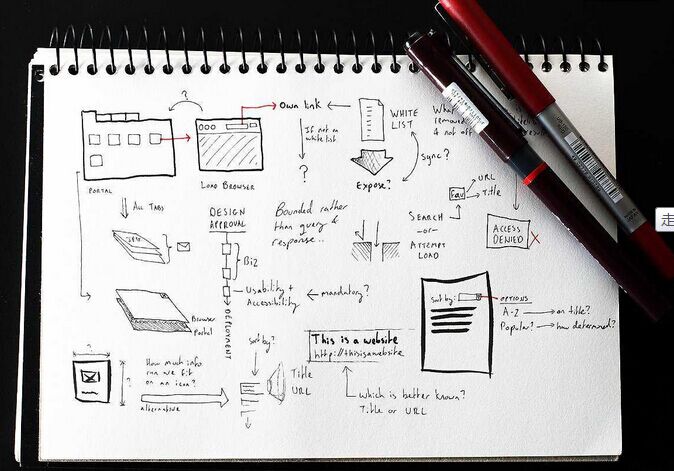 ?
Own link
WHITE
LIST
If not on
white list
?
Sync?
Expose?
PORTAL
LOAD BROWSER
ALL TABS
DESIGN
APPROVAL
Bounded rather
than query &
response..
Fav
URL
Title
SEARCH
-or-
ATTEMPT
LOAD
ACCESS
DENIED
BIZ
Usability +
Accessibility
mandatory?
DEPLOYMENT
Browser
Portal
Sort by:
OPTIONS
A-Z
on title?
Popular?
how determined?
This is a website
http://thisisawebsite
Sort by?
Title
URL
which is better known?
Title or URL
?
?
How much info
can we fit
on an icon?
alternative
走